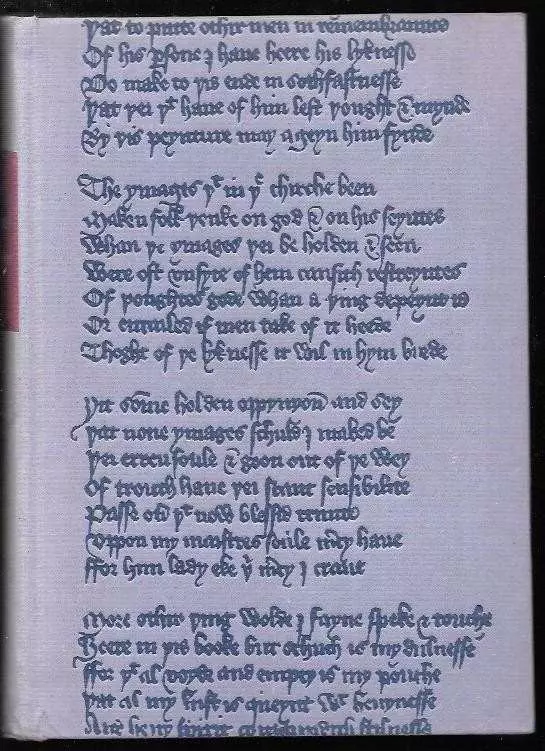 Þat to putte othir men in remembraunce
Of his ꝑsone I haue heere his lyknesse
Do make to þis ende in sothfastnesse
Þat þei þᵗ haue of him lest þought & mynde
By þis peynture may ageyn him fynde
The ymages þᵗ in þᵉ chirche been
Maken folk þenke on god & on his seyntes
Whan þe ymages þei be holden & seen
Were oft vnsyte of hem causith restreyntes
Of þoughtes gode whan a þing depeynt is
Or entailed if men take of it heede
Thoght of þe lyknesse it wil in hym brede
Yit som̄e holden oppynyon̄ and sey
Þat none ymages schuld I maked be
Þei erren foule & goon out of þe wey
Of trouth haue þei scant sensibilite
Passe ou̾ þᵗ now blessid trinite
Vppon my maistres soule m̾cy haue
ffor him lady eke þⁱ m̾cy I craue
More othir þing wolde I fayne speke & touche
Heere in þis booke but schuch is my dulnesse
ffor þᵗ al voyde and empty is my pouche
Þat al my lust is queynt wᵗ heuynesse
And heuy spirit comaundith stilnesse